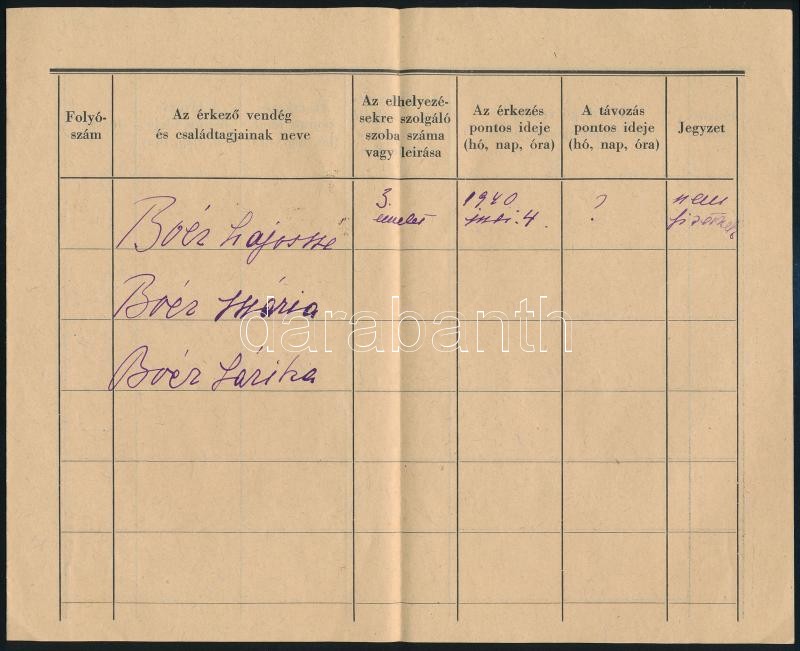 Folyó-
szám
Az érkező vendég
és családtagjainak neve
Az elhelyezé-
sekre szolgáló
szoba száma
vagy leirása
Az érkezés
pontos ideje
(hó, nap, óra)
A távozás
pontos ideje
(hó, nap, óra)
Jegyzet
Boér Lajosné
3.
emelet
1940
?
nem
Boér Mária
Boér Sárika
darabanth